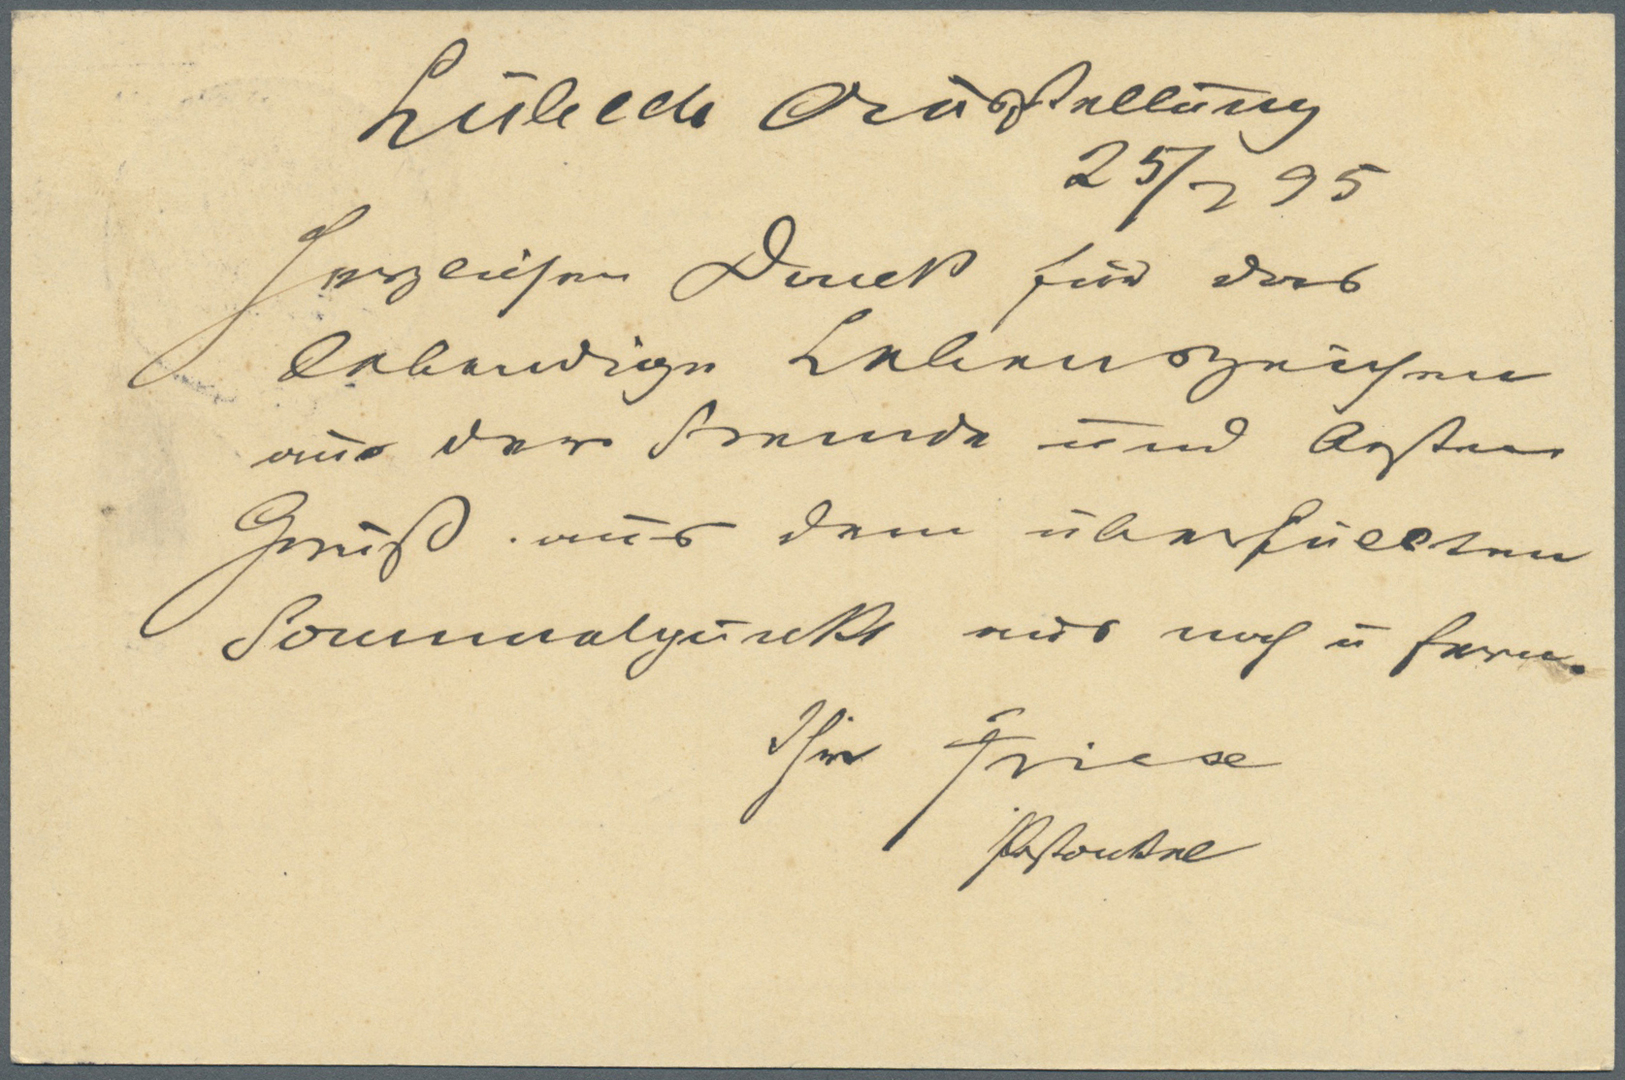 Lübeck Ausstellung
25/7 95
Herzlichen Dank für das
lebendige Lebenszeichen
aus der Fremde und besten
Gruß aus dem überfüllten
Sammelpunkt aus nah u fern.
Ihr Friese